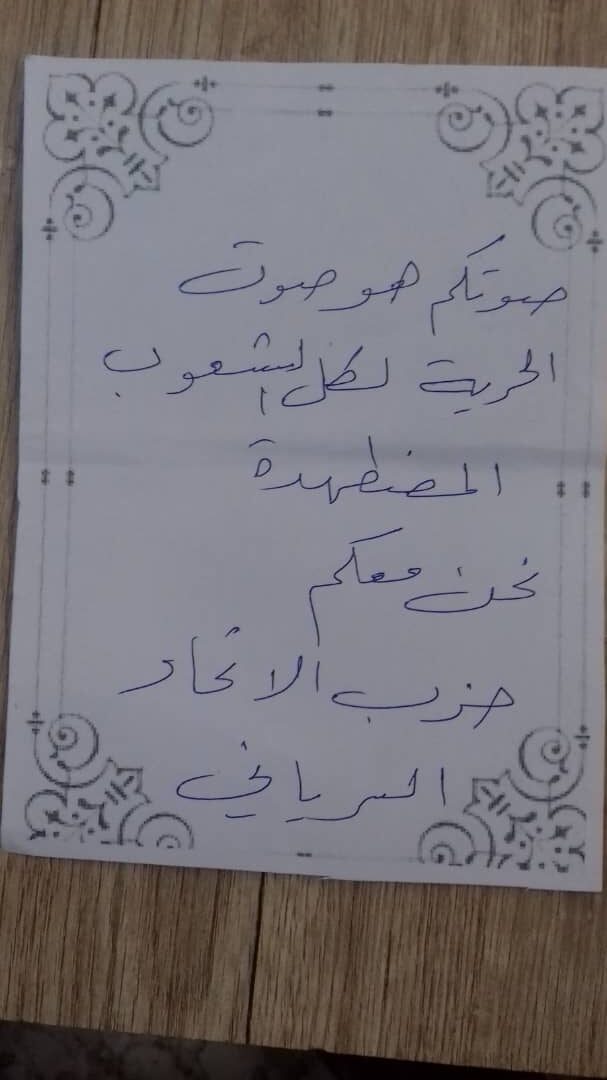 صوتكم هو صوت
الحرية لكل الشعوب
المضطهدة
نحن معكم
حزب الاتحاد
السرياني